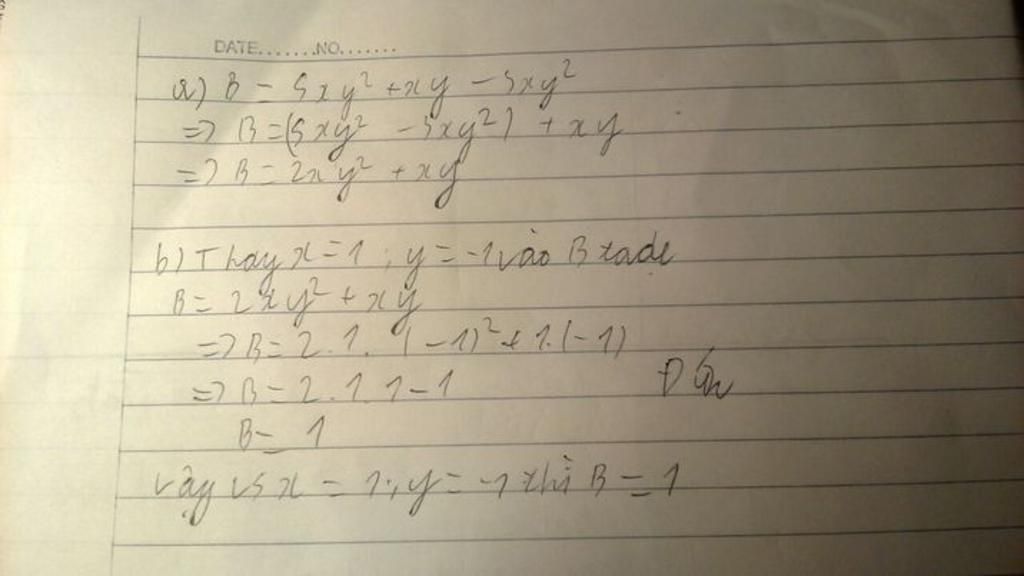 DATE.......NO.......
a) B = 5xy² + xy - 3xy²
=> B = (5xy² - 3xy²) + xy
=> B = 2xy² + xy
b) Thay x = 1 ; y = -1 vào B ta dc
B = 2xy² + xy
=> B = 2.1. (-1)² + 1.(-1)
=> B = 2.1.1 - 1
B = 1
Vậy vs x = 1 ; y = -1 thì B = 1